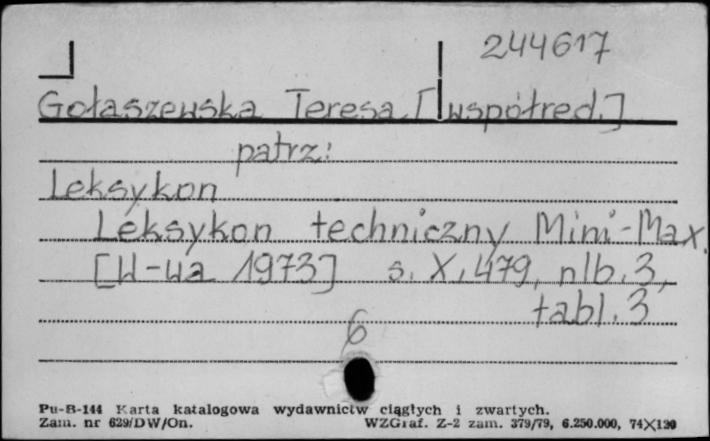 244617
Gołaszewska Teresa [współred.]
patrz:
Leksykon
Leksykon techniczny Mini-Max.
[W-wa 1973] s. X, 479, nlb. 3,
tabl. 3
6
Pu-B-144 Karta katalogowa wydawnictw ciągłych i zwartych.
Zam. nr 629/DW/On. WZGraf. Z-2 zam. 379/79, 6.250.000, 74X120